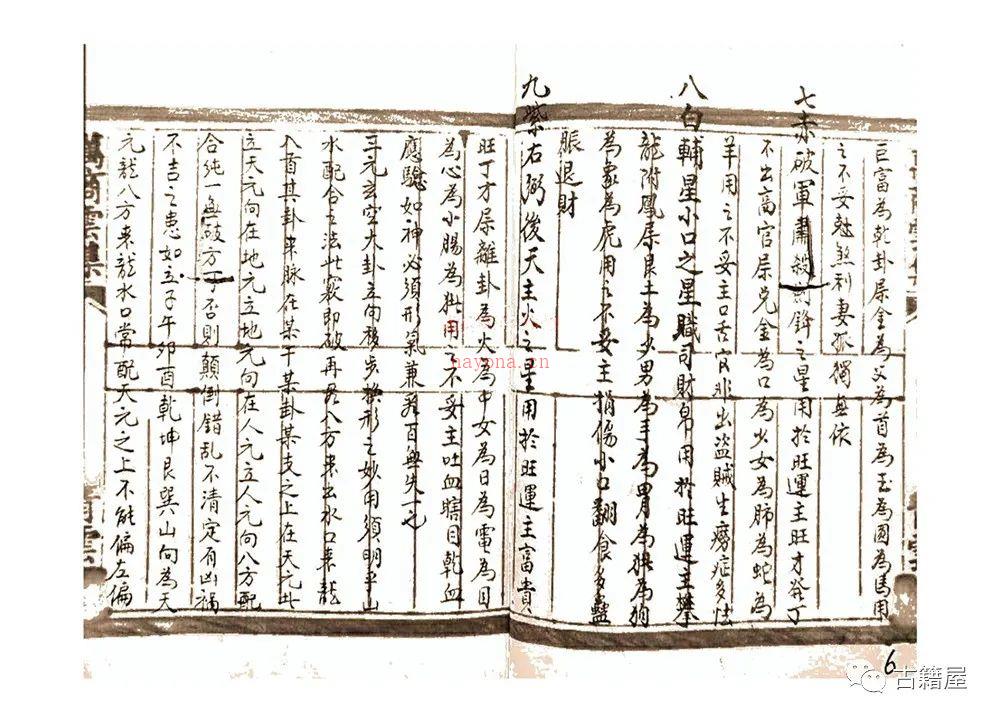 巨富為乾卦屬金為父為首為玉為圜為馬用
之不妥尅煞刑妻孤獨無依
七赤破軍肅殺劍鋒之星用於旺運主旺才發丁
不出高官屬兌金為口為少女為肺為蛇為
羊用之不妥主口舌官非出盜賊生癆症多怯
八白輔星小口之星職司財帛用於旺運主攀
龍附鳳屬艮土為少男為手為胃為狼為狗
為象為虎用之不妥主損傷小口翻食多蠱
脹退財
九紫右弼後天主火之星用於旺運主富貴
旺丁才屬離卦為火為中女為日為電為目
為心為小腸為用之不妥主吐血瞎目乾血
應驗如神必須形氣兼發百無失一也
三元玄空大卦立向移步換形之妙用須明乎山
水配合之法此竅即破再參八方來出水口來龍
入首其卦來脉在某干某卦某支之上在天元山
立天元向在地元立地元向在人元立人元向八方配
合純一無破方可否則顛倒錯亂不清定有凶禍
不吉之患如立子午卯酉乾坤艮巽山向為天
元龍八方來龍水口常配天元之上不能偏左偏
萬商雲集
青雲
6
hayona.cn
古籍屋